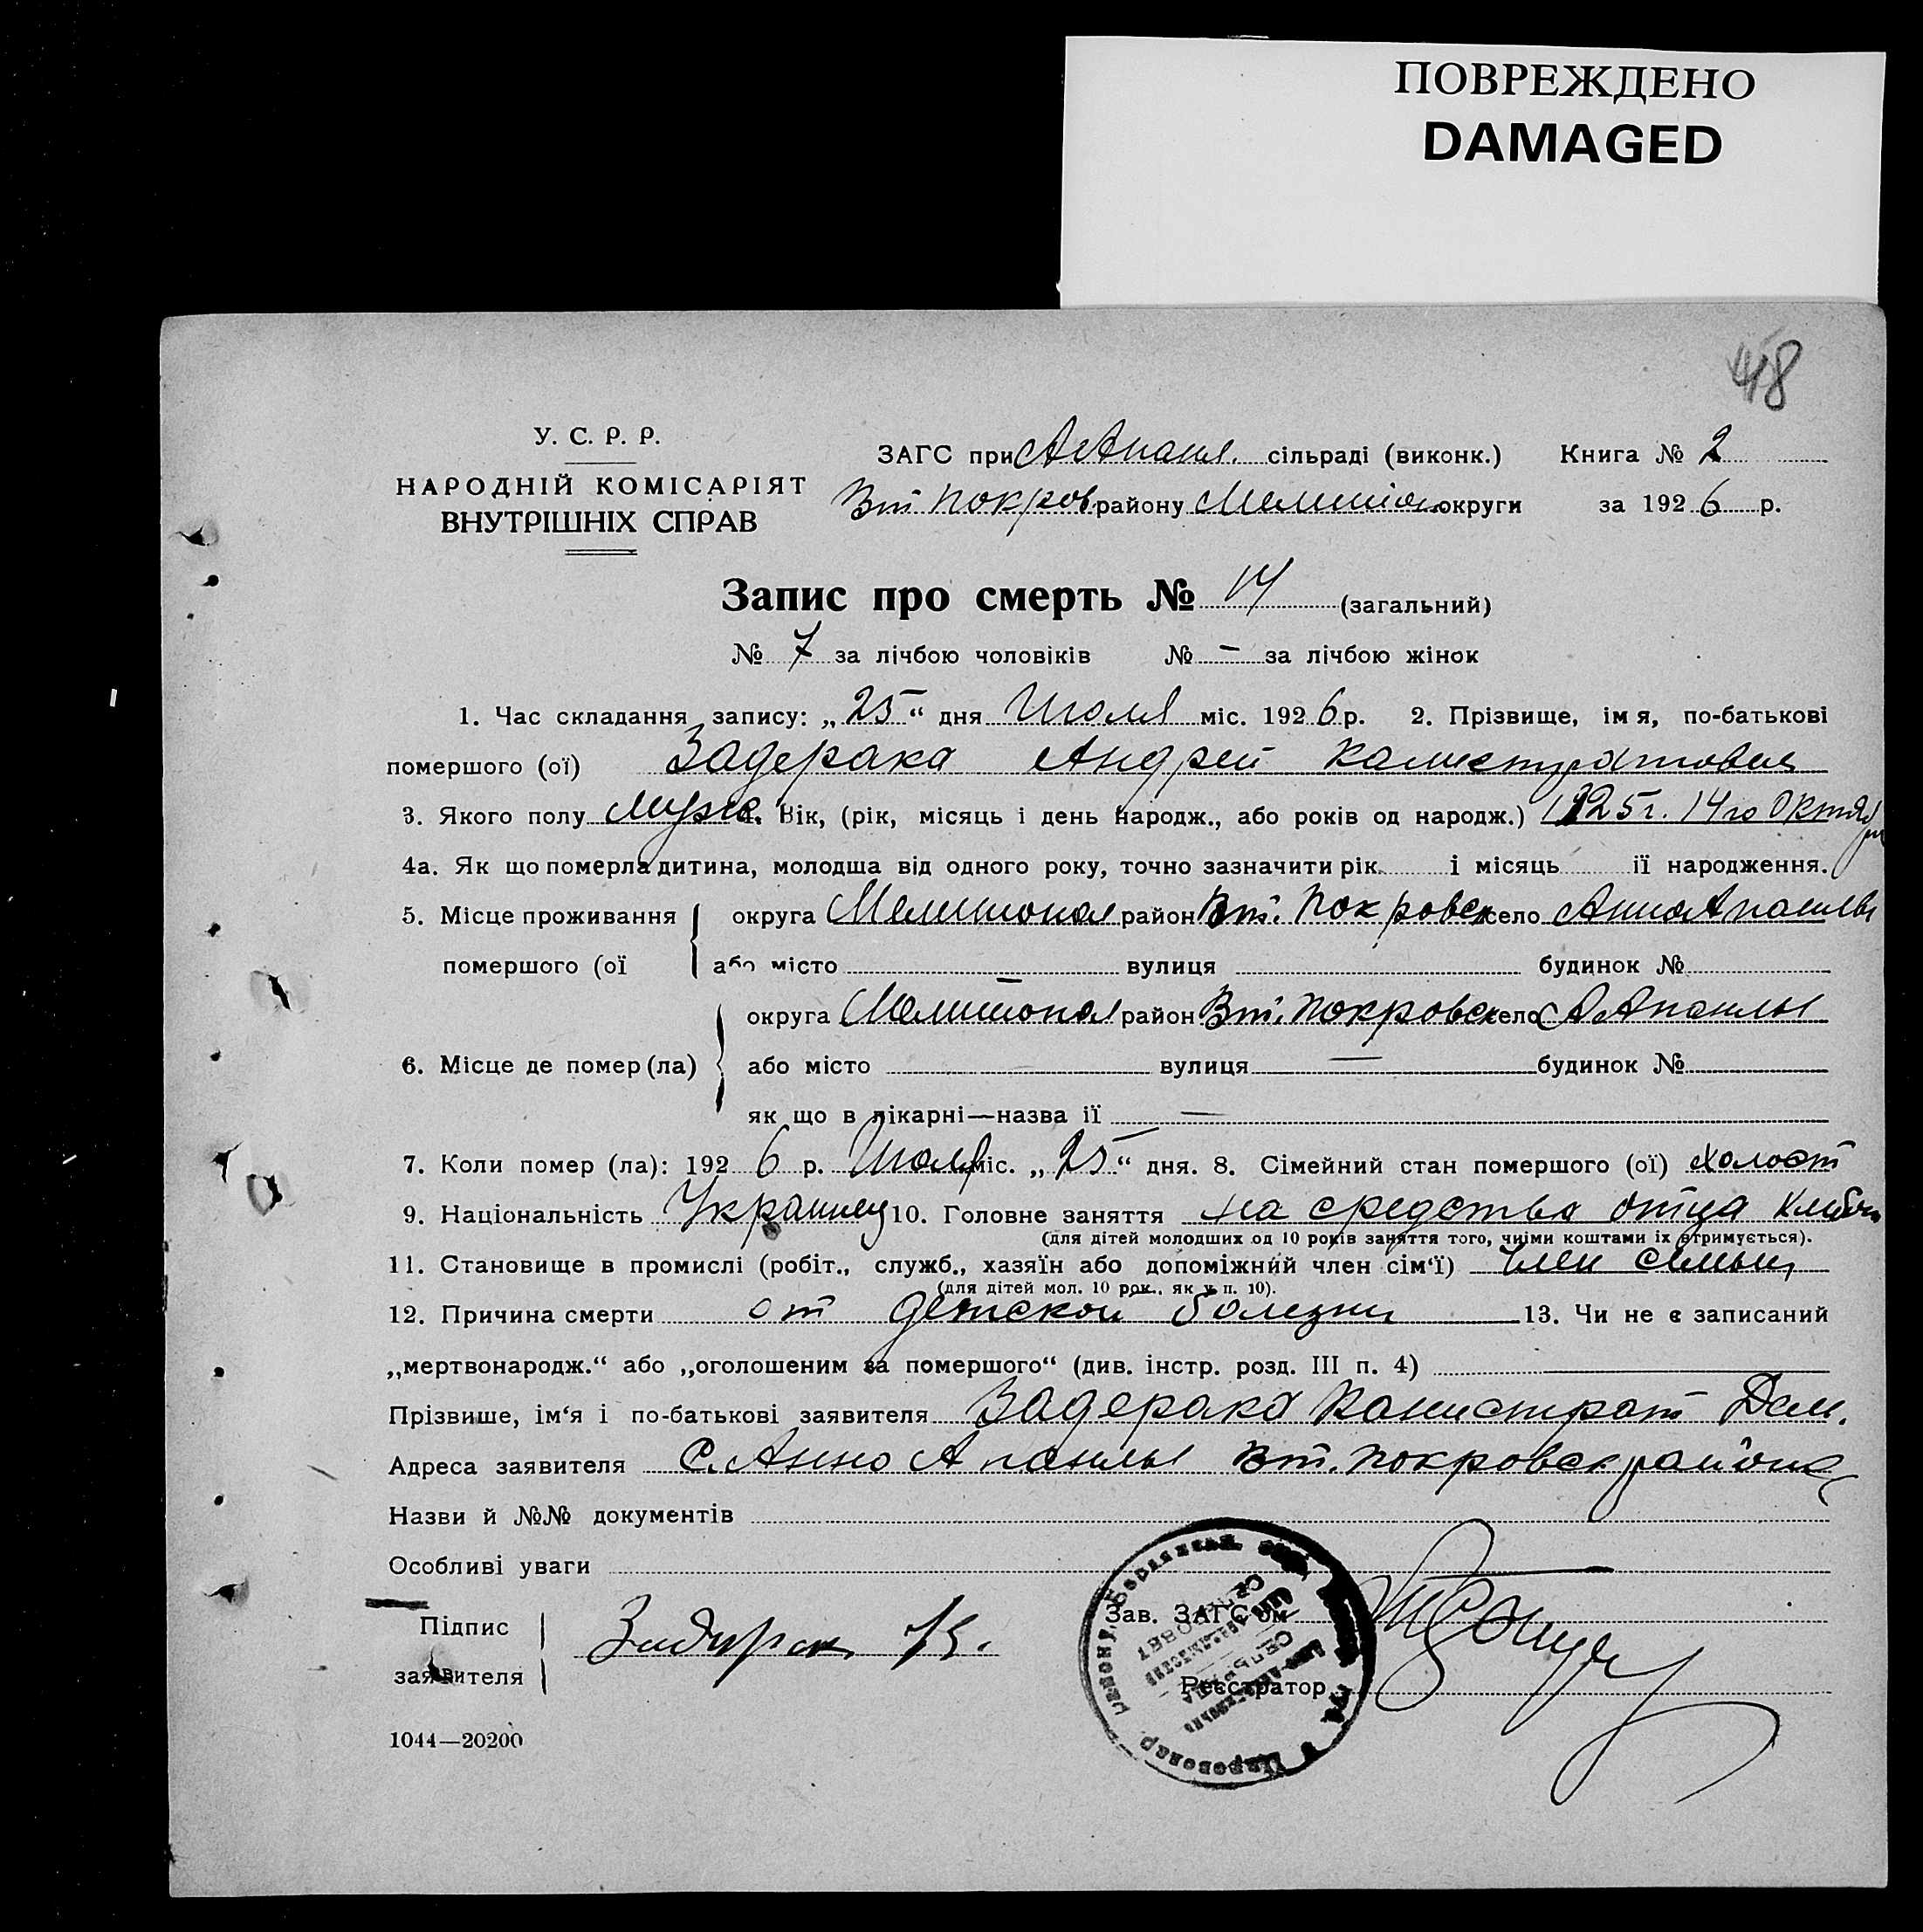 ПОВРЕЖДЕНО
DAMAGED
48
У. С. Р. Р.
НАРОДНІЙ КОМІСАРІЯТ
ВНУТРІШНІХ СПРАВ
ЗАГС при ААпанл. сільраді (виконк.) Книга № 2
Вт Покров району Мелитоп округи за 1926 р.
Запис про смерть № 14 (загальний)
№ 7 за лічбою чоловіків № – за лічбою жінок
1. Час складання запису: „25“ дня Июля міс. 1926 р. 2. Прізвище, імя, по-батькові
помершого (ої) Задерака Андрей Калистратович
3. Якого полу Муж. 4. Вік, (рік, місяць і день народж., або років од народж.) 1925 г. 14го Октября
4а. Як що померла дитина, молодша від одного року, точно зазначити рік і місяць її народження.
5. Місце проживання округа Мелитопол район Вт. Покровск село АнноАпанлы
помершого (ої або місто вулиця будинок №
округа Мелитопол район Вт. Покровск село ААпанлы
6. Місце де помер (ла) або місто вулиця — будинок №
як що в лікарні—назва її —
7. Коли помер (ла): 1926 р. Июля міс. „25“ дня. 8. Сімейний стан помершого (ої) холост
9. Національність Украинец 10. Головне заняття на средства отца
(для дітей молодших од 10 років заняття того, чиіми коштами їх втримується).
11. Становище в промислі (робіт., служб., хазяїн або допоміжний член сім‘ї) член семьи
(для дітей мол. 10 рок., як у п. 10).
12. Причина смерти от детской болезни 13. Чи не є записаний
„мертвонародж.“ або „оголошеним за помершого“ (див. інстр. розд. III п. 4)
Прізвише, ім‘я і по-батькові заявителя Задерака Калистрат Дем.
Адреса заявителя С. Анно Апанлы Вт. Покровск района
Назви й №№ документів
Особливі уваги
Підпис
заявителя
Зав. ЗАГС‘ом
Реєстратор
1044—20200